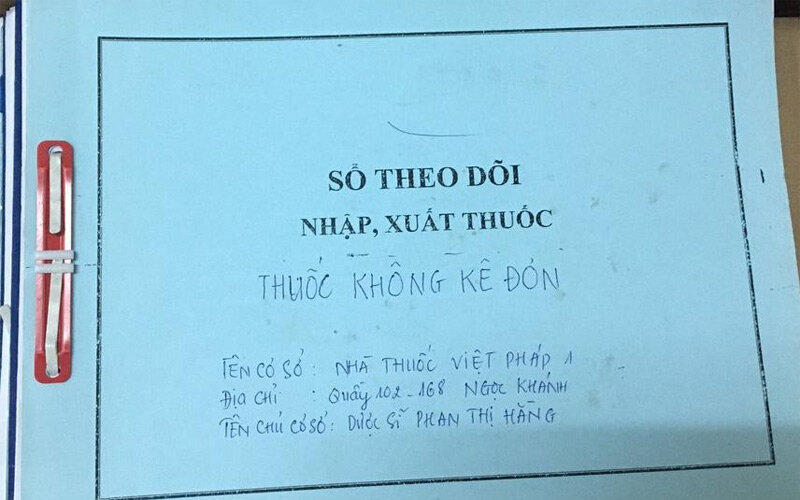 SỔ THEO DÕI
NHẬP, XUẤT THUỐC
THUỐC KHÔNG KÊ ĐÓN
TÊN CƠ SỞ : NHÀ THUỐC VIỆT PHÁP 1
ĐỊA CHỈ : QUẦY 102 - 168 NGỌC KHÁNH
TÊN CHỦ CƠ SỞ : DƯỢC SĨ PHAN THỊ HẰNG